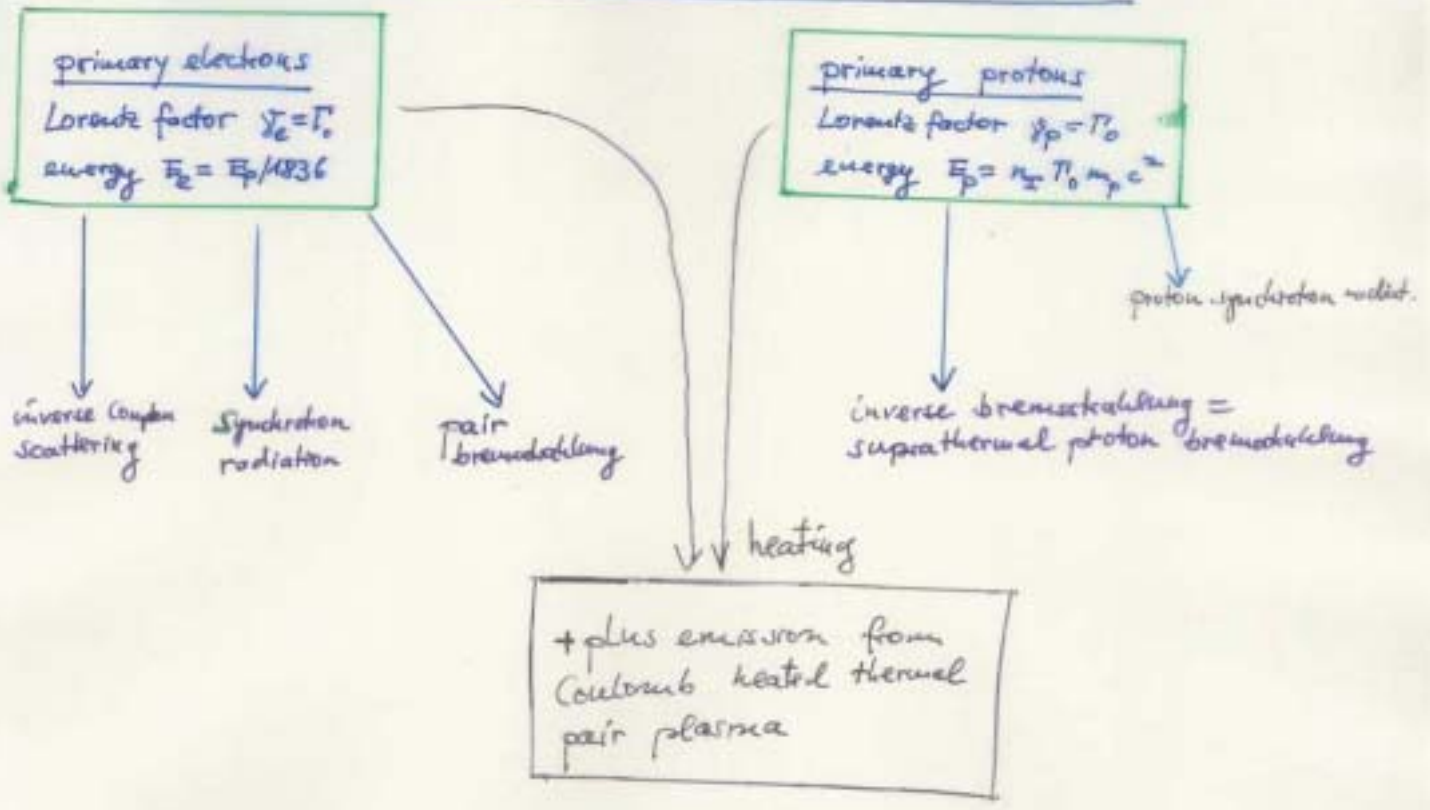 primary electrons
Lorentz factor γe = Γ0
energy Ee = Ep/1836
primary protons
Lorentz factor γp = Γ0
energy Ep = nI Γ0 mp c²
proton synchrotron radiat.
inverse Compton
scattering
synchrotron
radiation
pair
bremsstrahlung
inverse bremsstrahlung =
suprathermal proton bremsstrahlung
heating
+ plus emission from
Coulomb heated thermal
pair plasma